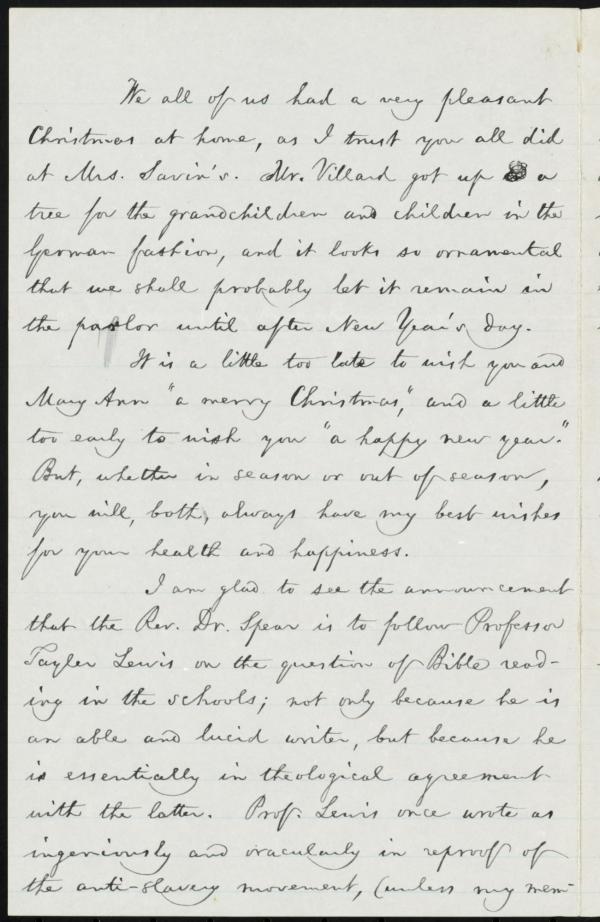 We all of us had a very pleasant
Christmas at home, as I trust you all did
at Mrs. Savin's. Mr. Villard got up a
tree for the grandchildren and children in the
German fashion, and it looks so ornamental
that we shall probably let it remain in
the parlor until after New Year's day.
It is a little too late to wish you and
Mary Ann "a merry Christmas," and a little
too early to wish you "a happy new year."
But, whether in season or out of season,
you will, both, always have my best wishes
for your health and happiness.
I am glad to see the announcement
that the Rev. Dr. Spear is to follow Professor
Tayler Lewis on the question of Bible read-
ing in the schools; not only because he is
an able and lucid writer, but because he
is essentially in theological agreement
with the latter. Prof. Lewis once wrote as
ingeniously and oracularly in reproof of
the anti-slavery movement, (unless my mem-